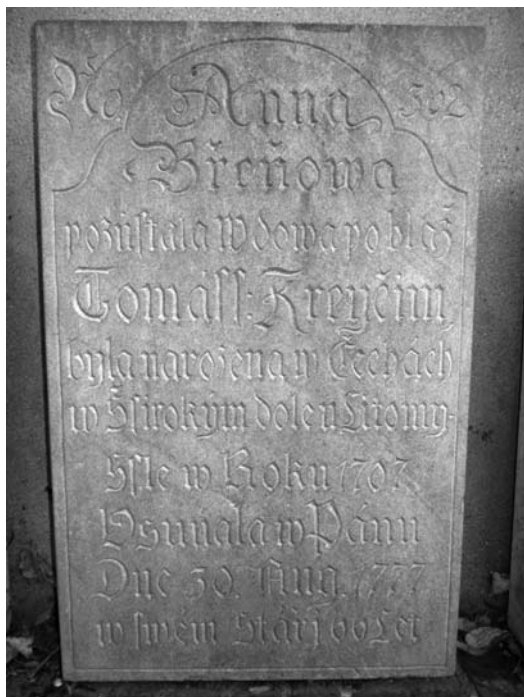 No. Anna 302
Břeňowa
pozůstala Wdowa po blaž
Tomáss: Kreyčim,
byla narozena w Čechách
w Ssirokým dole u Litomy-
Ssle w Roku 1707.
Usnula w Pánu
Dne 30. Aug. 1777
w swém Stářj 60 Let